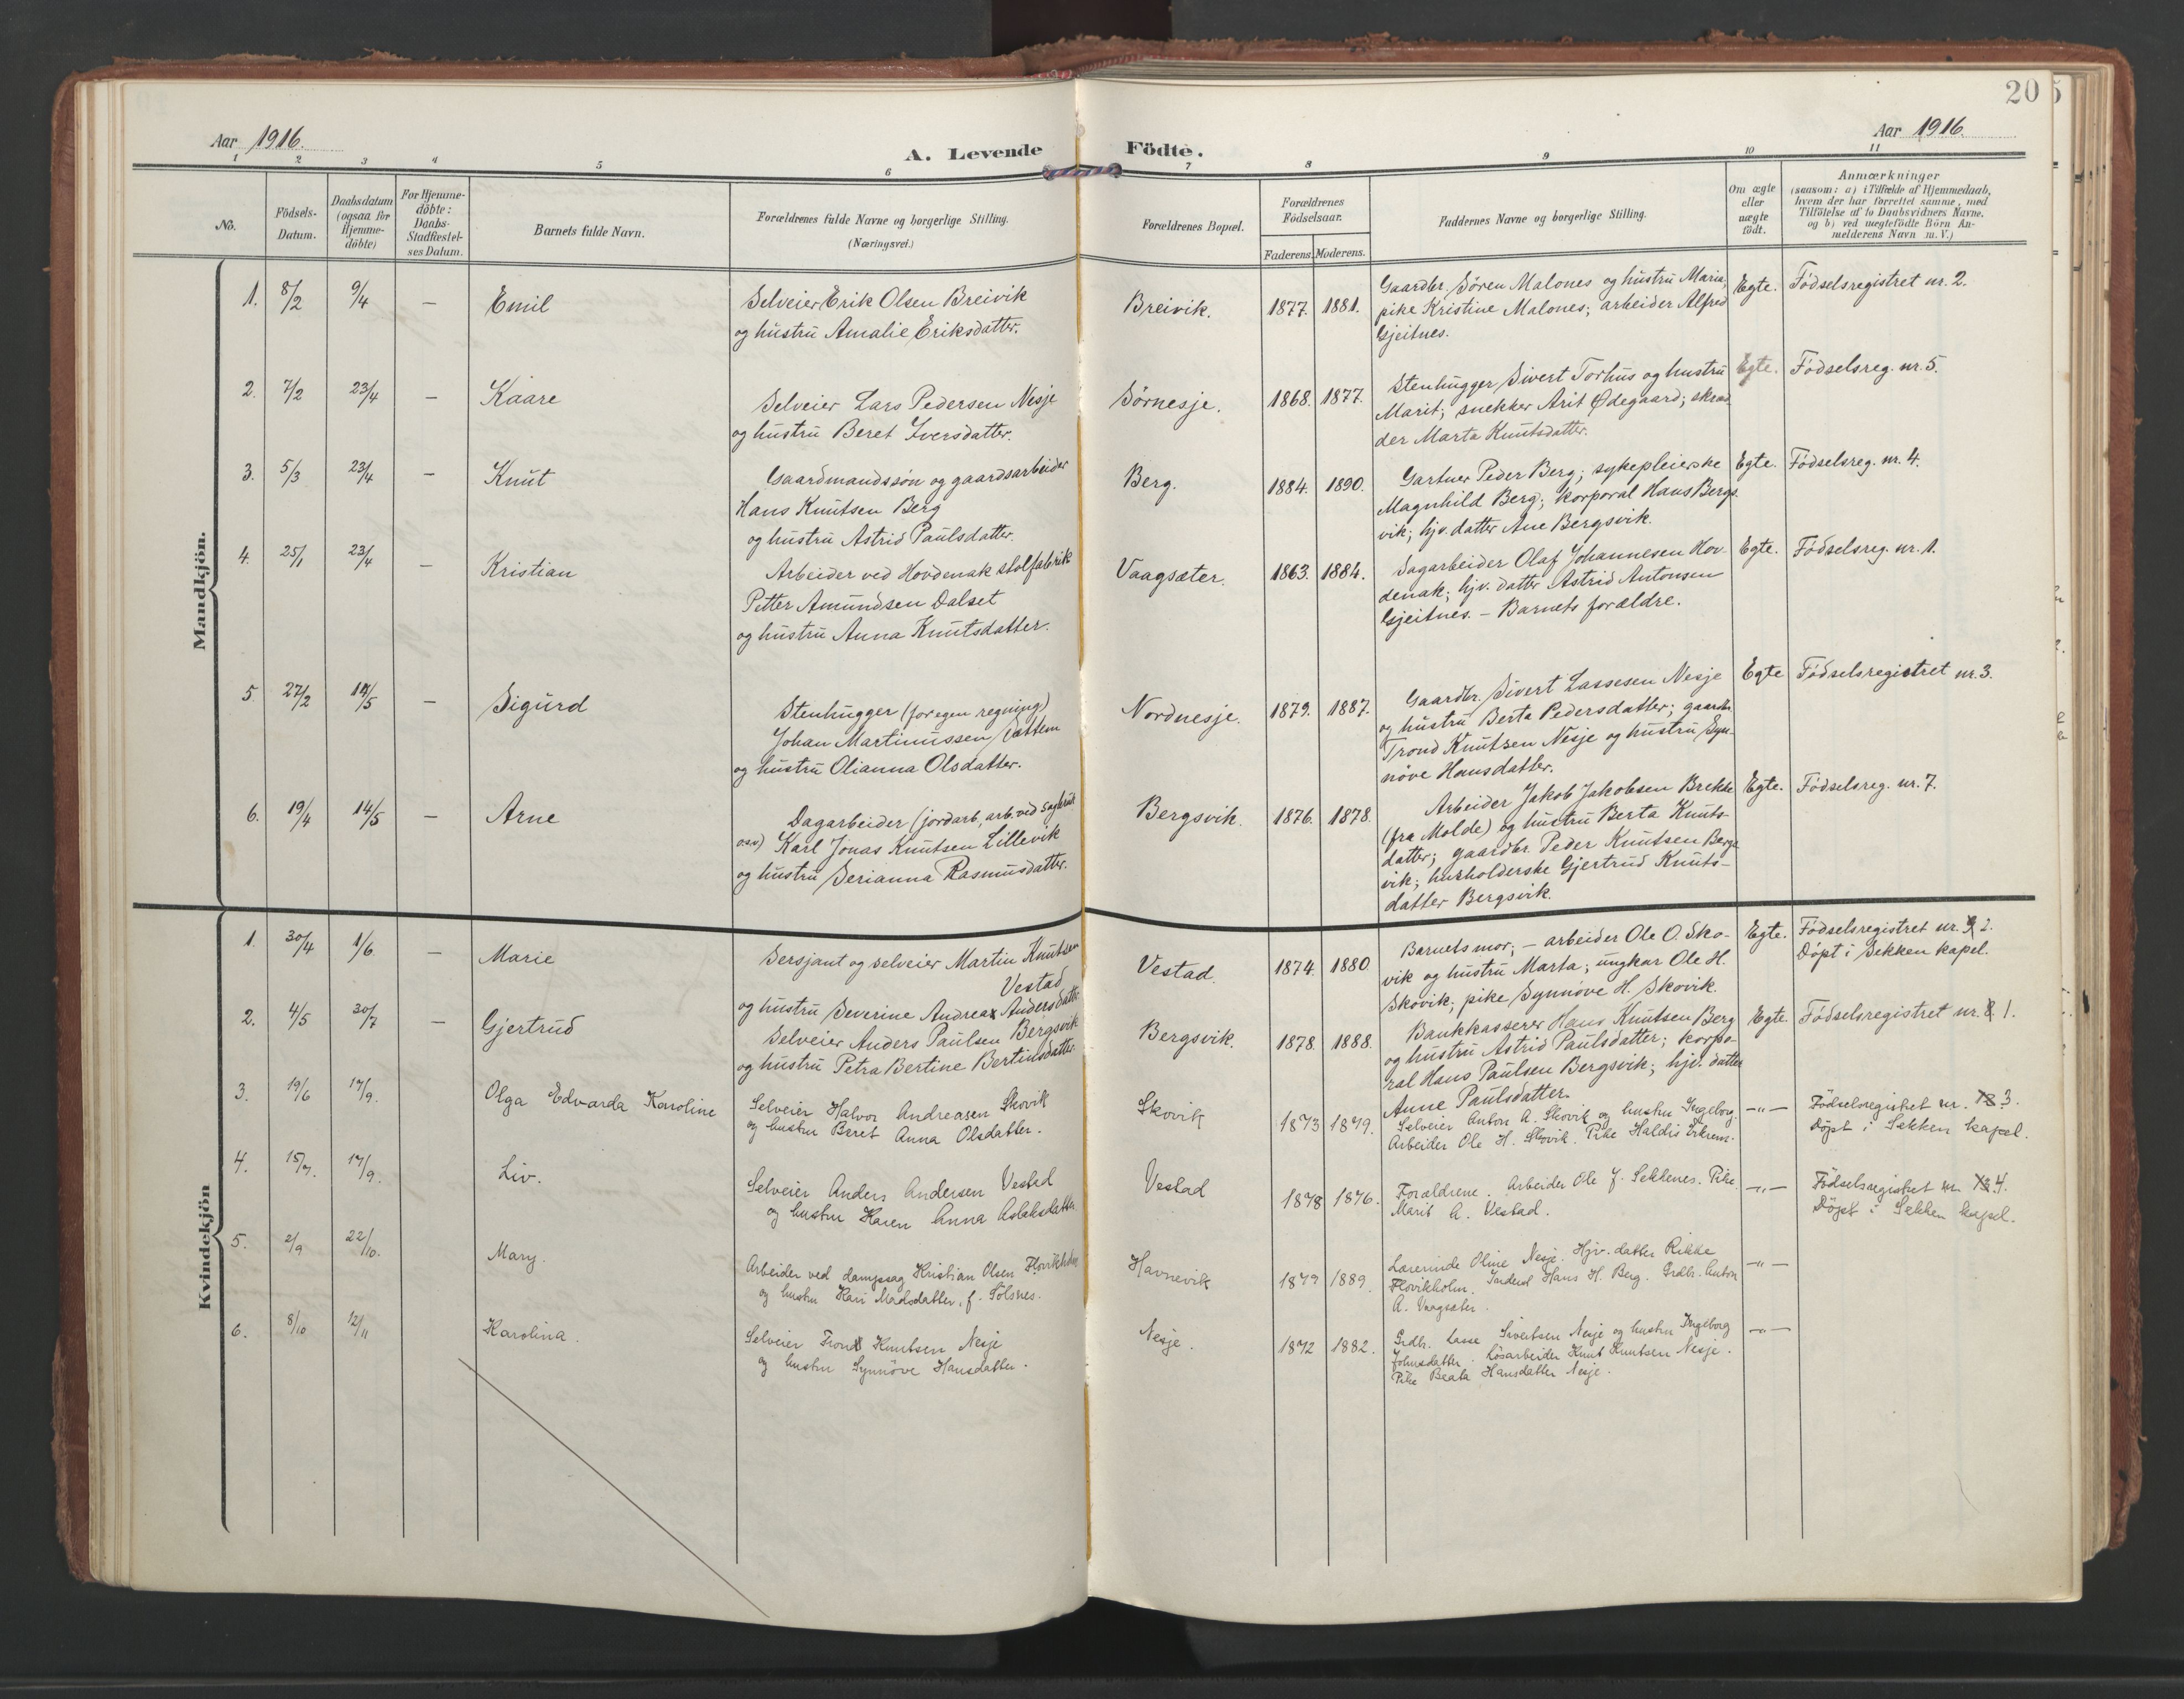 20
Aar 1916.
A. Levende Födte.
Aar 1916.
1 2 3 4 5 6 7 8 9 10 11
No.
Födsels-Datum.
Daabsdatum (ogsaa for Hjemme-döbte)
For Hjemme-döbte: Daabs-Stadfæstel-ses Datum.
Barnets fulde Navn.
Forældrenes fulde Navne og borgerlige Stilling.
(Næringsvei.)
Forældrenes Bopæl.
Forældrenes Födselsaar.
Faderens. Moderens.
Faddernes Navne og borgerlige Stilling.
Om ægte eller uægte födt.
Anmærkninger
(saasom: a) i Tilfælde af Hjemmedaab,
hvem der har forrettet samme, med
Tilföielse af to Daabsvidners Navne.
og b) ved uægtefödte Börn An-
melderens Navn m. V.)
Mandkjön.
1. 8/2 9/4 — Emil
Selveier Erik Olsen Breivik
og hustru Amalie Eriksdatter.
Breivik. 1877. 1881.
Gaardbr. Sören Malones og hustru Maria,
pike Kristine Malones; arbeider Alfred
Gjeitnes.
Egte. Födselsregistret nr. 2.
2. 7/2 23/4 — Kaare
Selveier Lars Pedersen Nesje
og hustru Beret Iversdatter.
Sörnesje. 1868. 1877.
Stenhugger Sivert Torhus og hustru
Marit; snekker Arit Ødegaard; skræd
der Marta Knutsdatter.
Egte. Födselsreg. nr. 5.
3. 5/3 23/4 — Knut
Gaardmandssön og gaardsarbeider
Hans Knutsen Berg
og hustru Astrid Paulsdatter.
Berg. 1884. 1890.
Gartner Peder Berg; sykepleierske
Magnhild Berg; korporal Hans Bergs-
vik; hjv. datter Ane Bergsvik.
Egte. Födselsreg. nr. 4.
4. 25/1 23/4 — Kristian
Arbeider ved Hovdenak stolfabrik
Petter Amundsen Dalset
og hustru Anna Knutsdatter.
Vaagsæter. 1863. 1884.
Sagarbeider Olaf Johannesen Hov-
denak; hjv. datter Astrid Antonsen
Gjeitnes. — Barnets forældre.
Egte. Födselsreg. nr. 1.
5. 27/2 14/5 — Sigurd
Stenhugger (for egen regning)
Johan Martinussen Sættem
og hustru Olianna Olsdatter.
Nordnesje. 1879. 1887.
Gaardbr. Sivert Lassesen Nesje
og hustru Berta Pedersdatter; gaardbr.
Trond Knutsen Nesje og hustru Syn-
növe Hansdatter.
Egte Födselsregistret nr. 3.
6. 19/4 14/5 — Arne
Dagarbeider (jordarb, arb. ved sagbruk
o.s.v) Karl Jonas Knutsen Lillevik
og hustru Serianna Rasmusdatter.
Bergsvik. 1876. 1878.
Arbeider Jakob Jakobsen Brekke
(fra Molde) og hustru Berta Knuts-
datter; gaardbr. Peder Knutsen Bergs
vik; husholderske Gjertrud Knuts-
datter Bergsvik.
Egte. Födselsreg. nr. 7.
Kvindekjön
1. 30/4 1/6 — Marie
Sersjant og selveier Martin Knutsen
Vestad
og hustru Severine Andrea Andersdatter
Vestad. 1874. 1880.
Barnets mor; — arbeider Ole O. Sko-
vik og hustru Marta; ungkar Ole H.
Skovik; pike Synnöve H. Skovik.
Egte. Födselsregistret nr. 9 2.
Döpt i Sekken kapel.
2. 4/5 30/7 — Gjertrud
Selveier Anders Paulsen Bergsvik
og hustru Petra Bertine Bertinsdatter
Bergsvik. 1878. 1888.
Bankkasserer Hans Knutsen Berg
og hustru Astrid Paulsdatter; korpo-
ral Hans Paulsen Bergsvik; hjv. datter
Anne Paulsdatter.
Egte. Födselsregistret nr. 8 1.
3. 19/6 17/9. Olga Edvarda Karoline
Selveier Halvor Andreasen Skovik
og hustru Beret Anna Olsdatter.
Skovik 1873 1879.
Selveier Anton A. Skovik og hustru Ingeborg.
Arbeider Ole H. Skovik. Pike Haldis Erkrem.
—"— Födselsregistret nr. 12 3.
Döpt i Sekken kapel.
4. 15/7. 17/9. Liv.
Selveier Anders Andersen Vestad
og hustru Karen Anna Aslaksdatter.
Vestad 1878 1876.
Forældrene. Arbeider Ole J. Sekkenes. Pike
Marit A. Vestad.
—"— Födselsregistret nr. 13 4.
Döpt i Sekken kapel.
5. 2/9 22/10. Mary.
Arbeider ved dampsag Kristian Olsen Flovikholm
og hustru Kari Madsdatter, f. Solsnes.
Havnevik 1879 1889.
Lærerinde Oline Nesje. Hjv. datter Rikke
Flovikholm. Hans H. Berg. Grdbr. Anton
A. Vaagsæter.
—"—
6. 8/10 12/11 Karolina.
Selveier Trond Knutsen Nesje
og hustru Synnöve Hansdatter.
Nesje. 1872 1882.
Grdbr. Lasse Sivertsen Nesje og hustru Ingeborg
Johnsdatter. Lösarbeider Knut Knutsen Nesje.
Pike Beata Hansdatter Nesje.
—"—